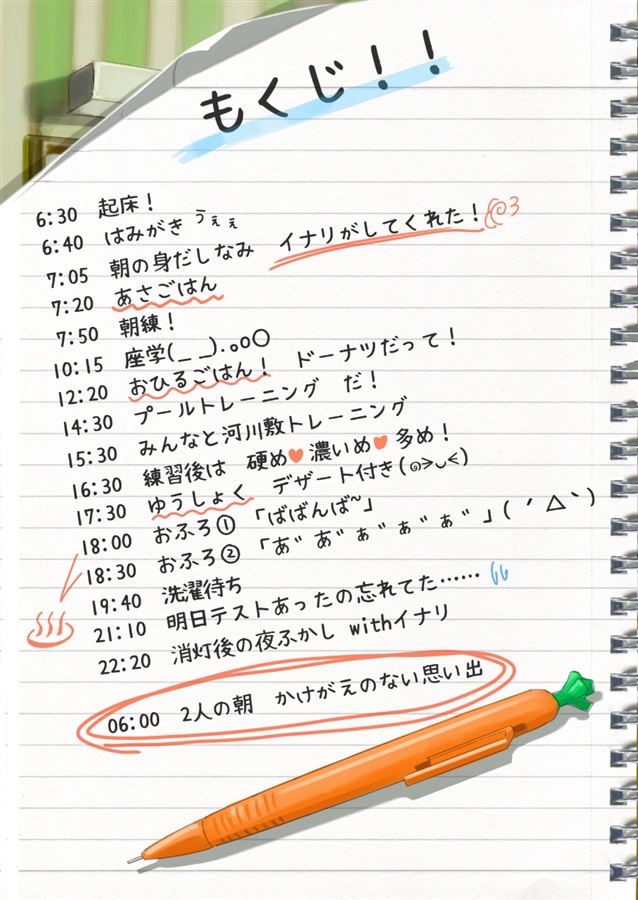 もくじ！！
6:30 起床！
6:40 はみがき うぇぇ
7:05 朝の身だしなみ イナリがしてくれた！
7:20 あさごはん
7:50 朝練！
10:15 座学(_ _).｡oO
12:20 おひるごはん！ ドーナツだって！
14:30 プールトレーニング だ！
15:30 みんなと河川敷トレーニング
16:30 練習後は 硬め♥濃いめ♥多め！
17:30 ゆうしょく デザート付き(๑>ᴗ<)
18:00 おふろ① 「ばばんば~」
18:30 おふろ② 「あ゛あ゛ぁ゛ぁ゛ぁ゛」( ´ △ ｀)
19:40 洗濯待ち
21:10 明日テストあったの忘れてた……
22:20 消灯後の夜ふかし withイナリ
06:00 2人の朝 かけがえのない思い出